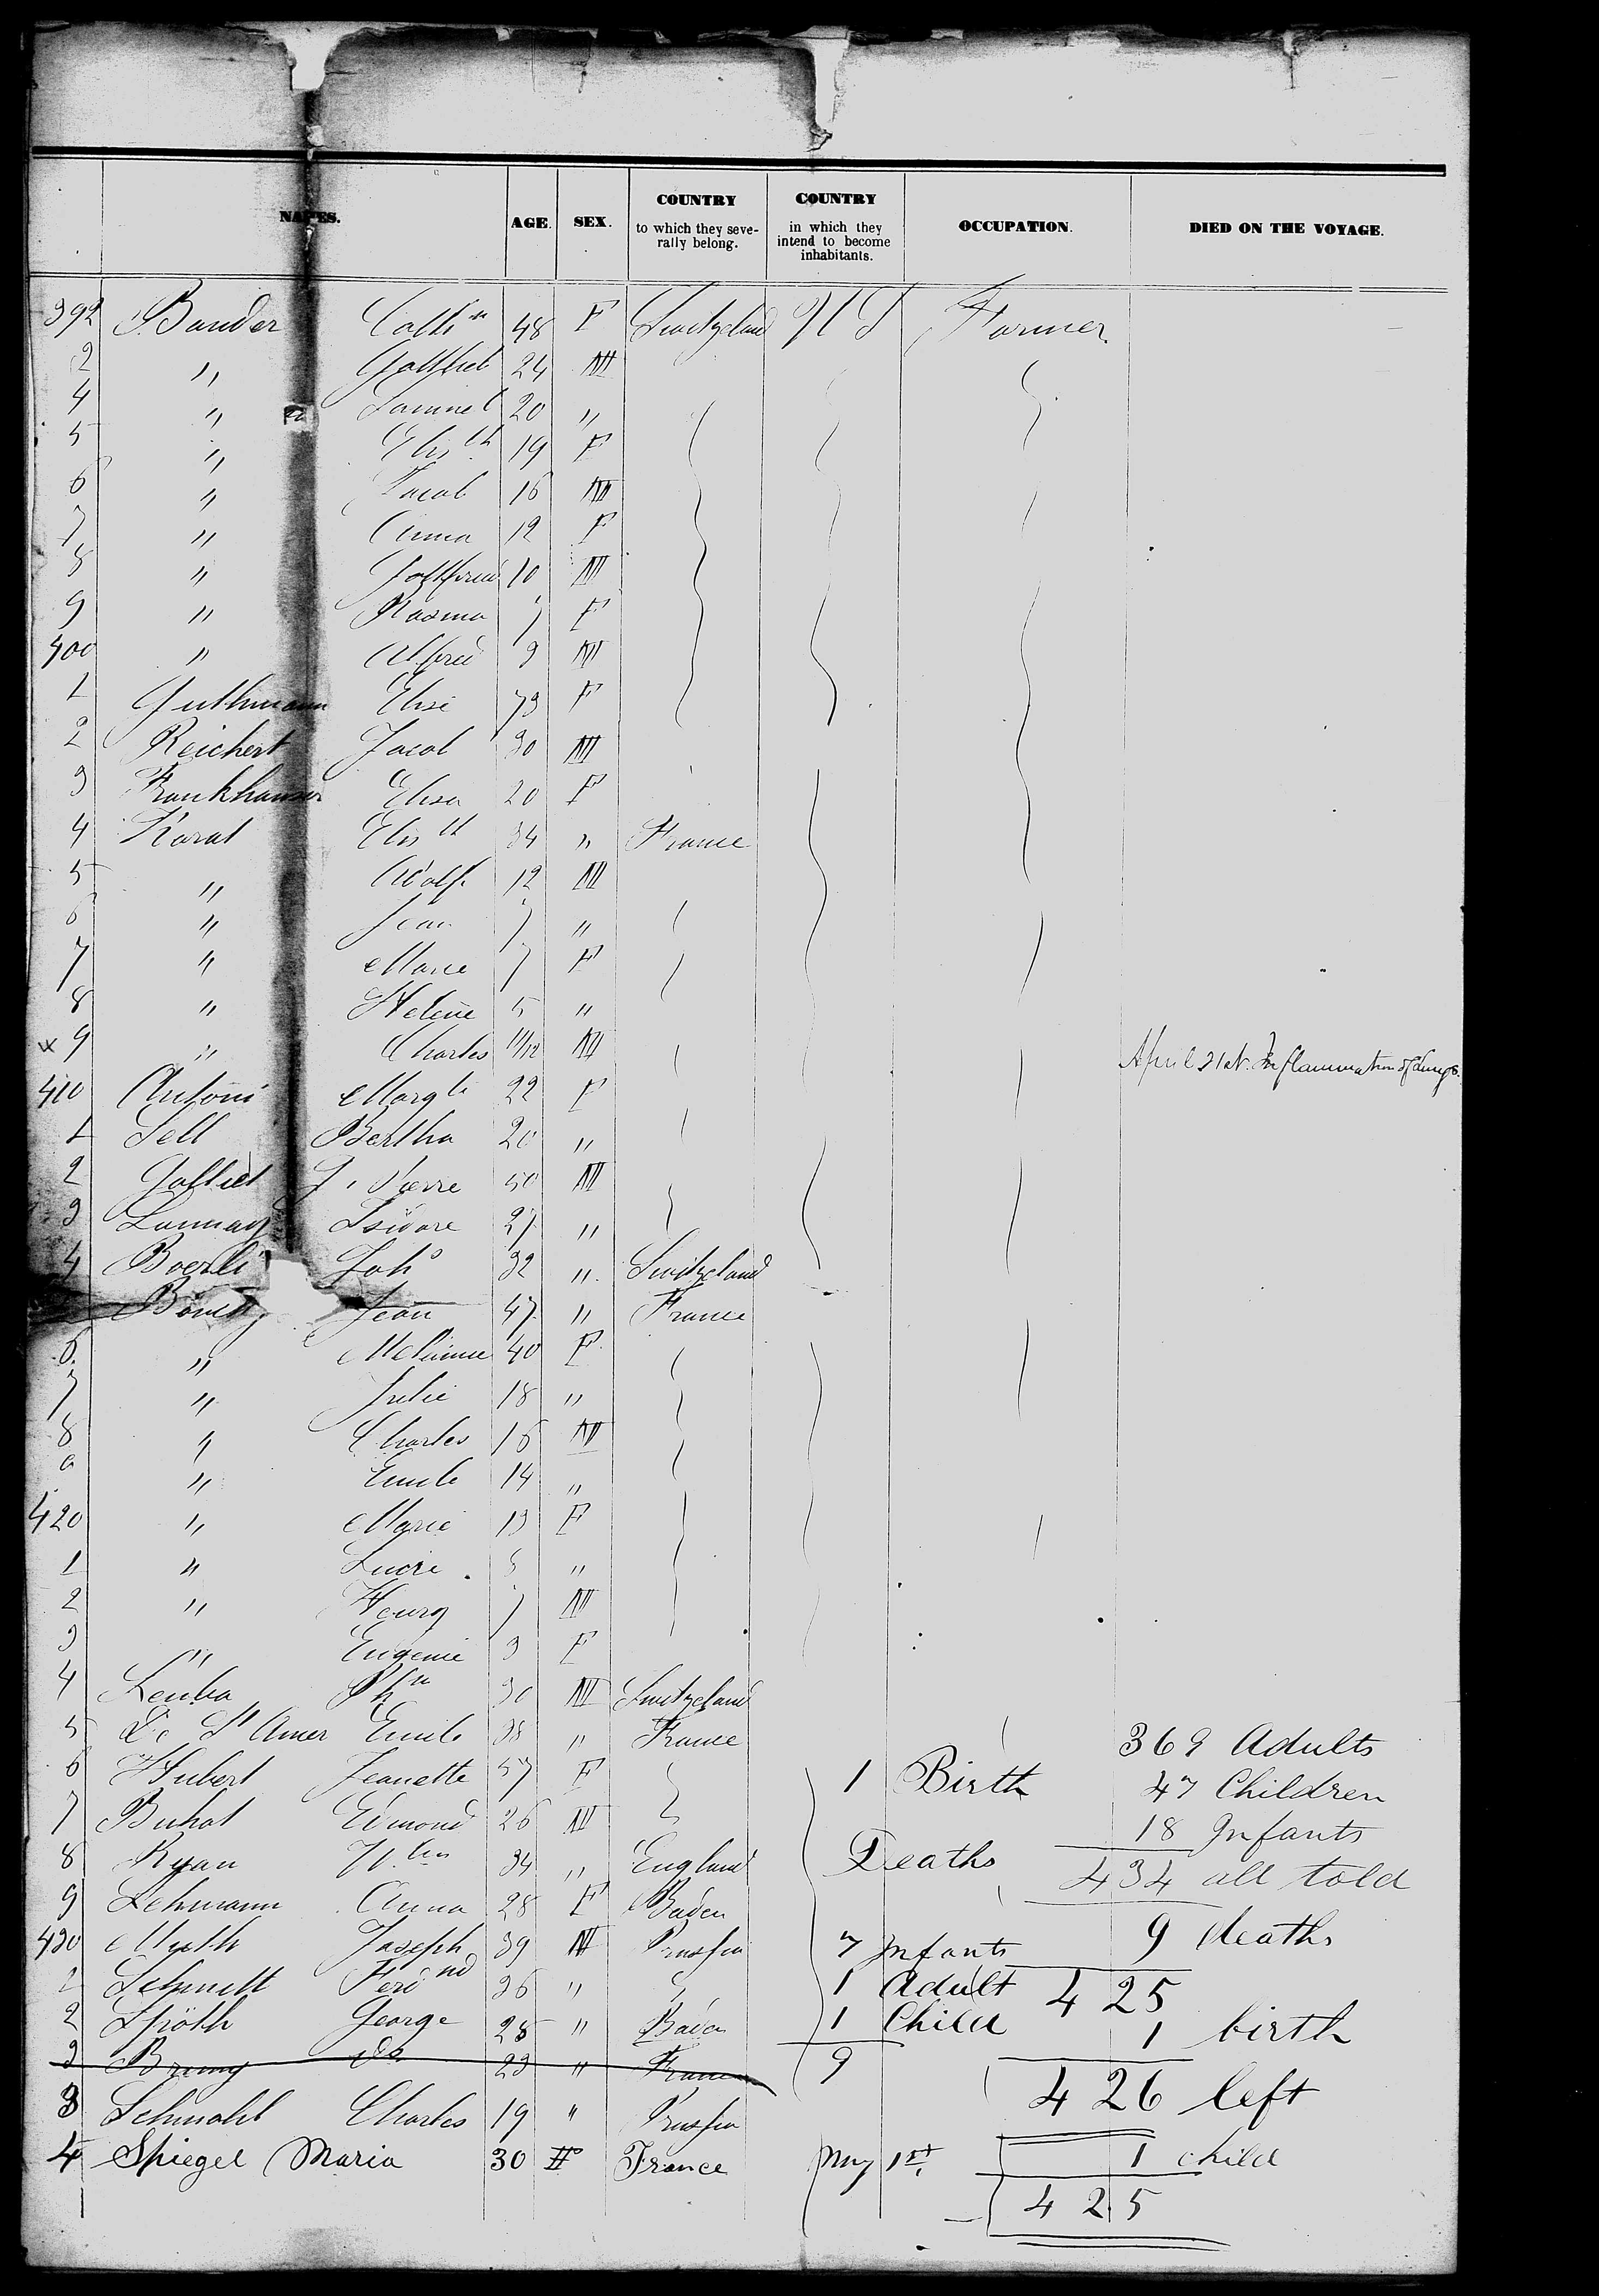 NAMES. AGE. SEX. COUNTRY to which they severally belong. COUNTRY in which they intend to become inhabitants. OCCUPATION. DIED ON THE VOYAGE.
392 Bander Cath 48 F Switzeland US Farmer
" Gottlieb 24 M
4 " Samuel 20 "
5 " Elisth 19 F
6 " Jacob 16 M
7 " Anna 12 F
8 " Gottfried 10 M
9 " Rosina 7 F
400 " Alfred 3 M
1 Guthmann Elise 73 F
2 Reichert Jacob 30 M
3 Frankhauser Elisa 20 F
4 Karat Elisth 34 " France
5 " Adolf 12 M
6 " Jean 7 "
7 " Marie 7 F
8 " Helene 5 "
x 9 " Charles 11/12 M April 21st. Inflammation of Lungs.
410 Antoni Margte 22 F
1 Sell Bertha 20 "
2 J. Pierre 50 M
3 Isidore 27 "
4 Boerli Joho 32 " Switzeland
Jean 47 " France
6 " 40 F
7 " Julie 18 "
8 " Charles 16 M
9 " Emile 14 "
420 " Marie 13 F
1 " "
2 " Henry 7 M
3 " Eugenie 3 F
4 Leuba 30 M Switzeland
5 De St Amer Emile 38 " France
6 Hubert Jeanette 57 F
7 Buhot Edmond 26 M
8 Ryan 34 " England
9 Lehmann Anna 28 F Baden
430 Muth Joseph 39 M Prussia
1 Schmitt Ferdnd 36 " "
2 Späth George 28 " Baden
3 Do 23 " France
3 Schmahl Charles 19 " Prussia
4 Spiegel Maria 30 F France
1 Birth
Deaths
7 Infants
1 Adult
1 Child
9
369 Adults
47 Children
18 Infants
434 all told
9 deaths
425
1 birth
426 left
May 1st. 1 child
425